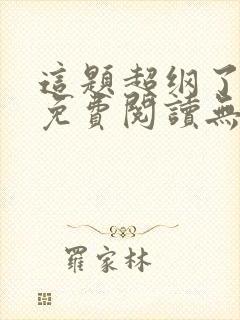 這題超纲了
免費閱讀無
羅家林